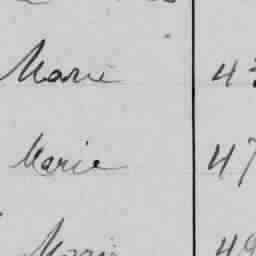 Marie 43
Marie 47
Marie 49